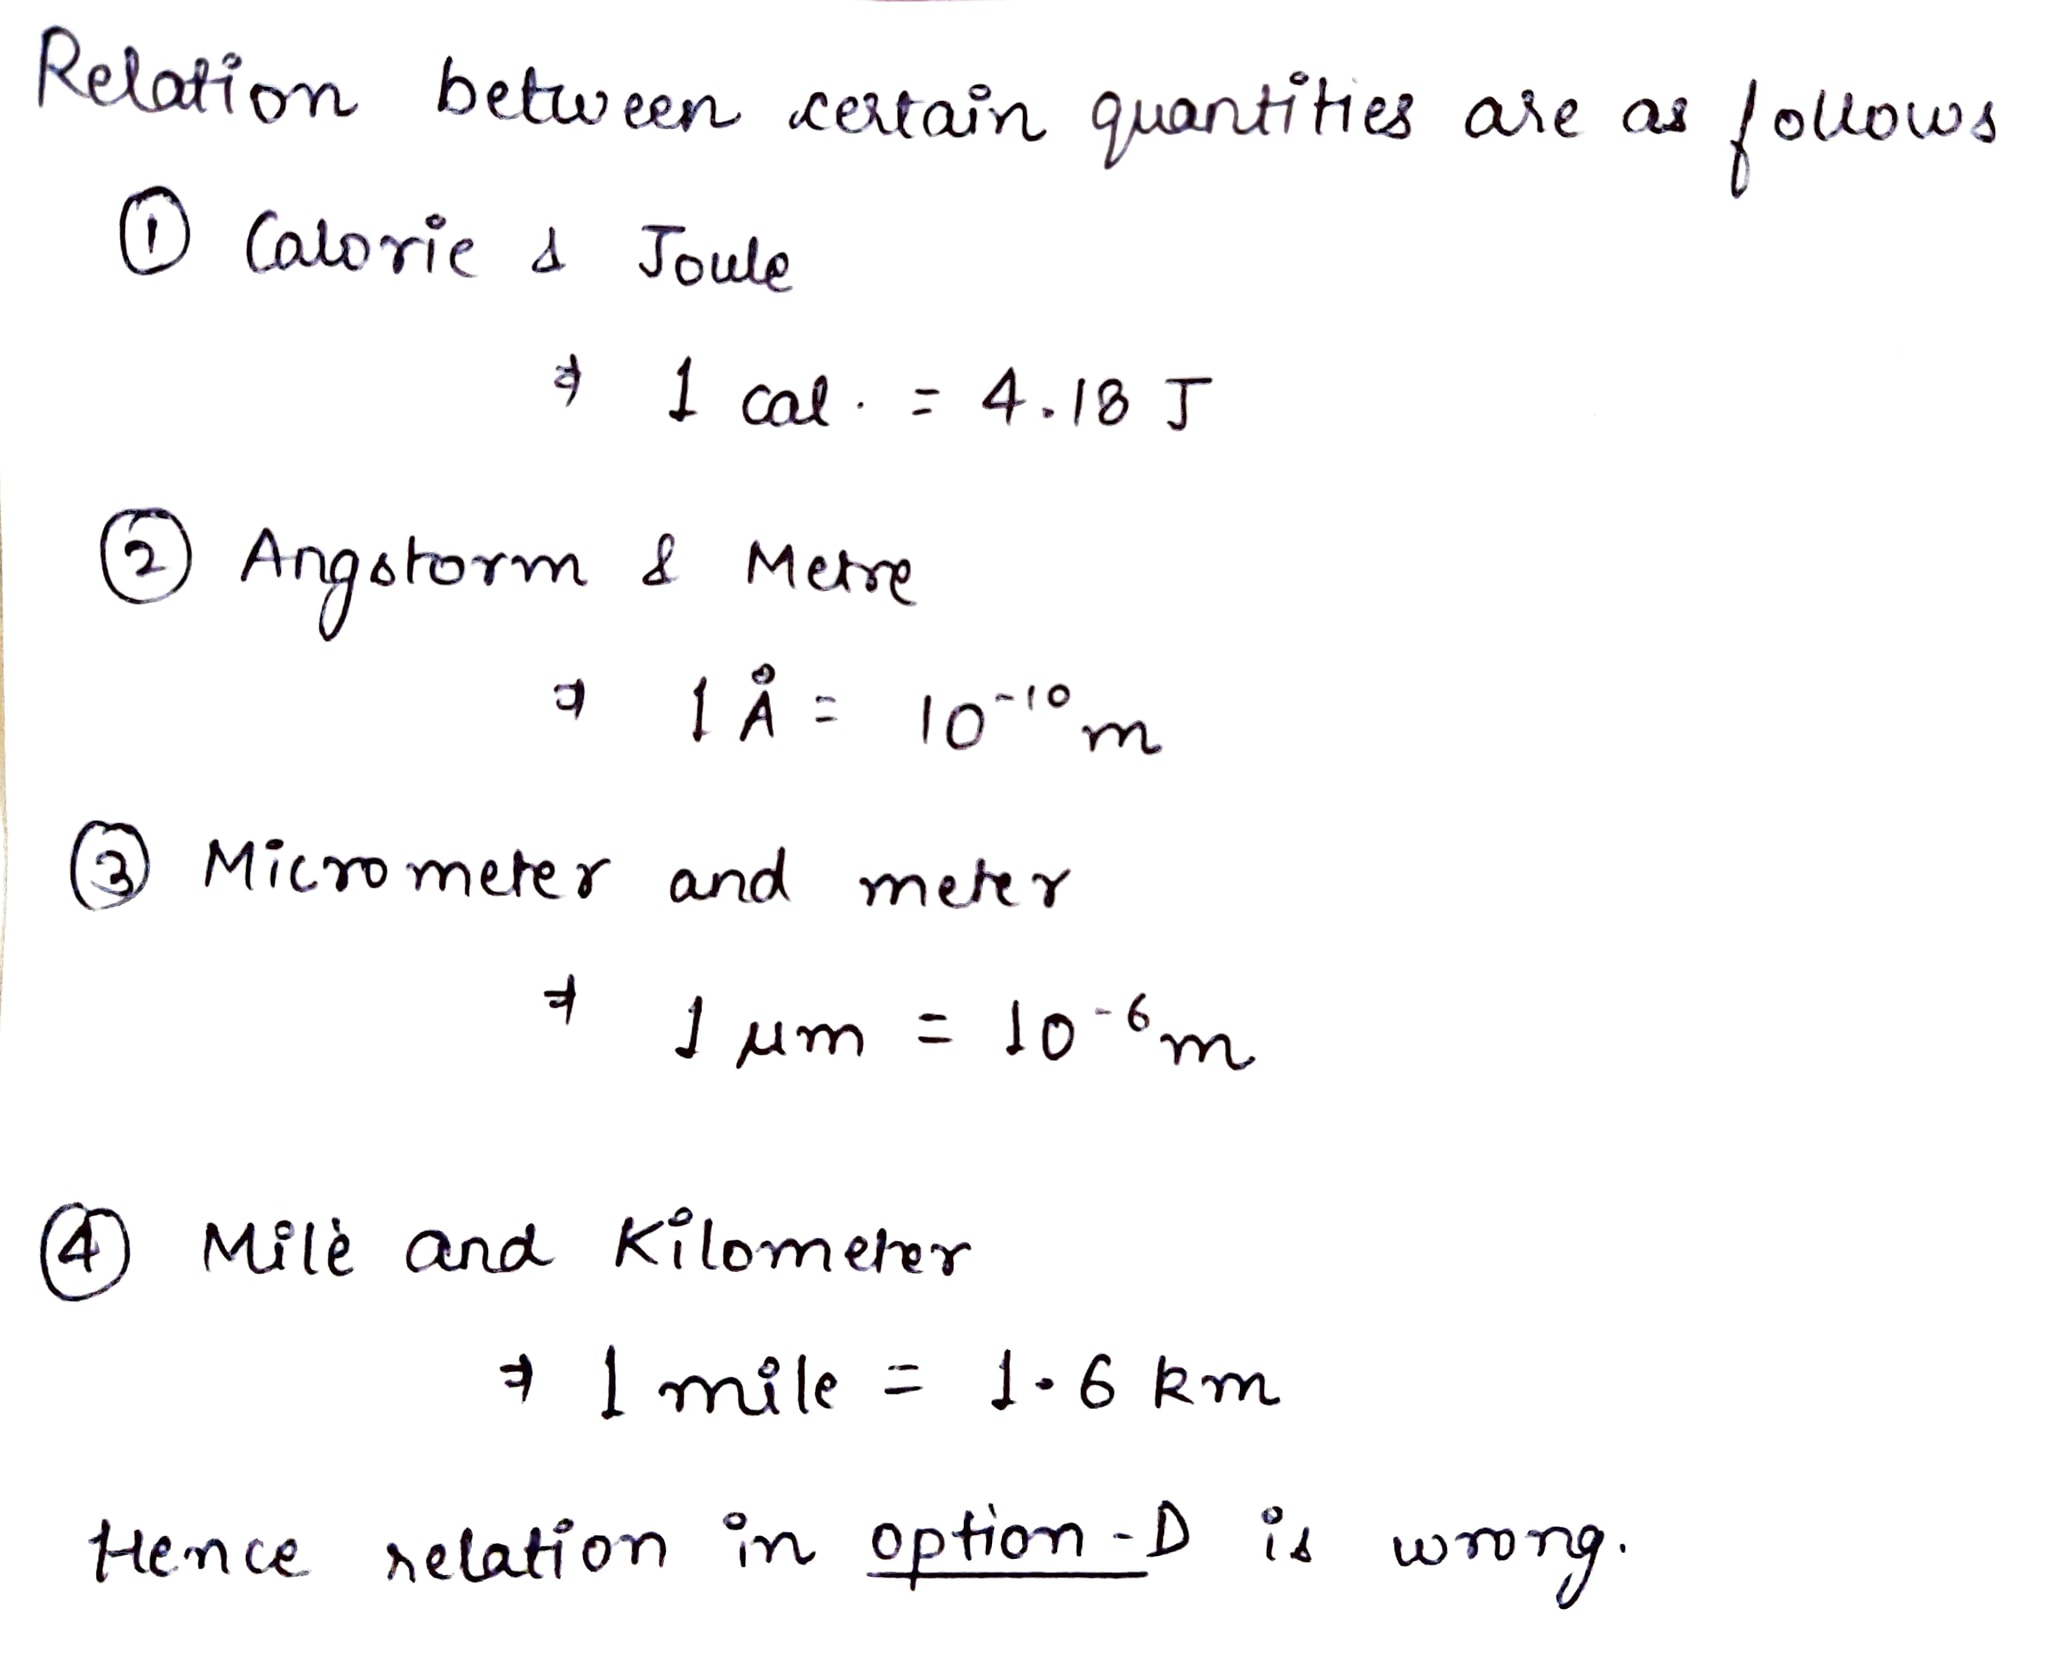 Relation between certain quantities are as follows
① Calorie & Joule
⇒ 1 cal. = 4.18 J
② Angstorm & Metre
⇒ 1 Å = 10⁻¹⁰ m
③ Micrometer and meter
⇒ 1 μm = 10⁻⁶ m
④ Mile and Kilometer
⇒ 1 mile = 1.6 km
Hence relation in option-D is wrong.